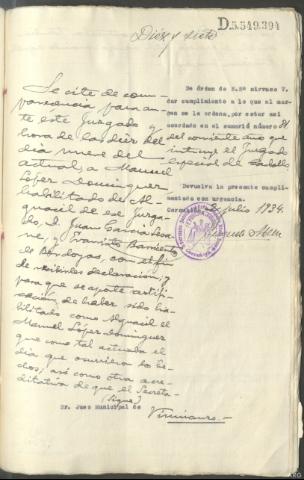 D.5.549.394
Diez y siete
Se cite de com-
parecencia para an-
te este Juzgado y
hora de las diez del
día nueve del
actual, a Manuel
López Dominguez
habilitado de Al-
guacil de ese Juzga-
do, el Juan
y
de Bordoyas, con el fin
de recibirles declaración, y
para que se aporte certifi-
cación, de haber sido ha-
bilitado como Alguacil el
Manuel López Dominguez
que como tal actuaba el
día que ocurrieron los he-
chos; así como otra acre-
ditativa de que el Secreta-
(sigue)
De orden de S.Sª sirvase V.
dar cumplimiento a lo que al mar-
gen se le ordena, por estar así
acordado en el sumario número 81
del corriente año que
instruye el Juzgado
especial de
Devuelva la presente cumpli-
mentada con urgencia.
julio 1934.
Sr. Juez Municipal de
Vimianzo.-